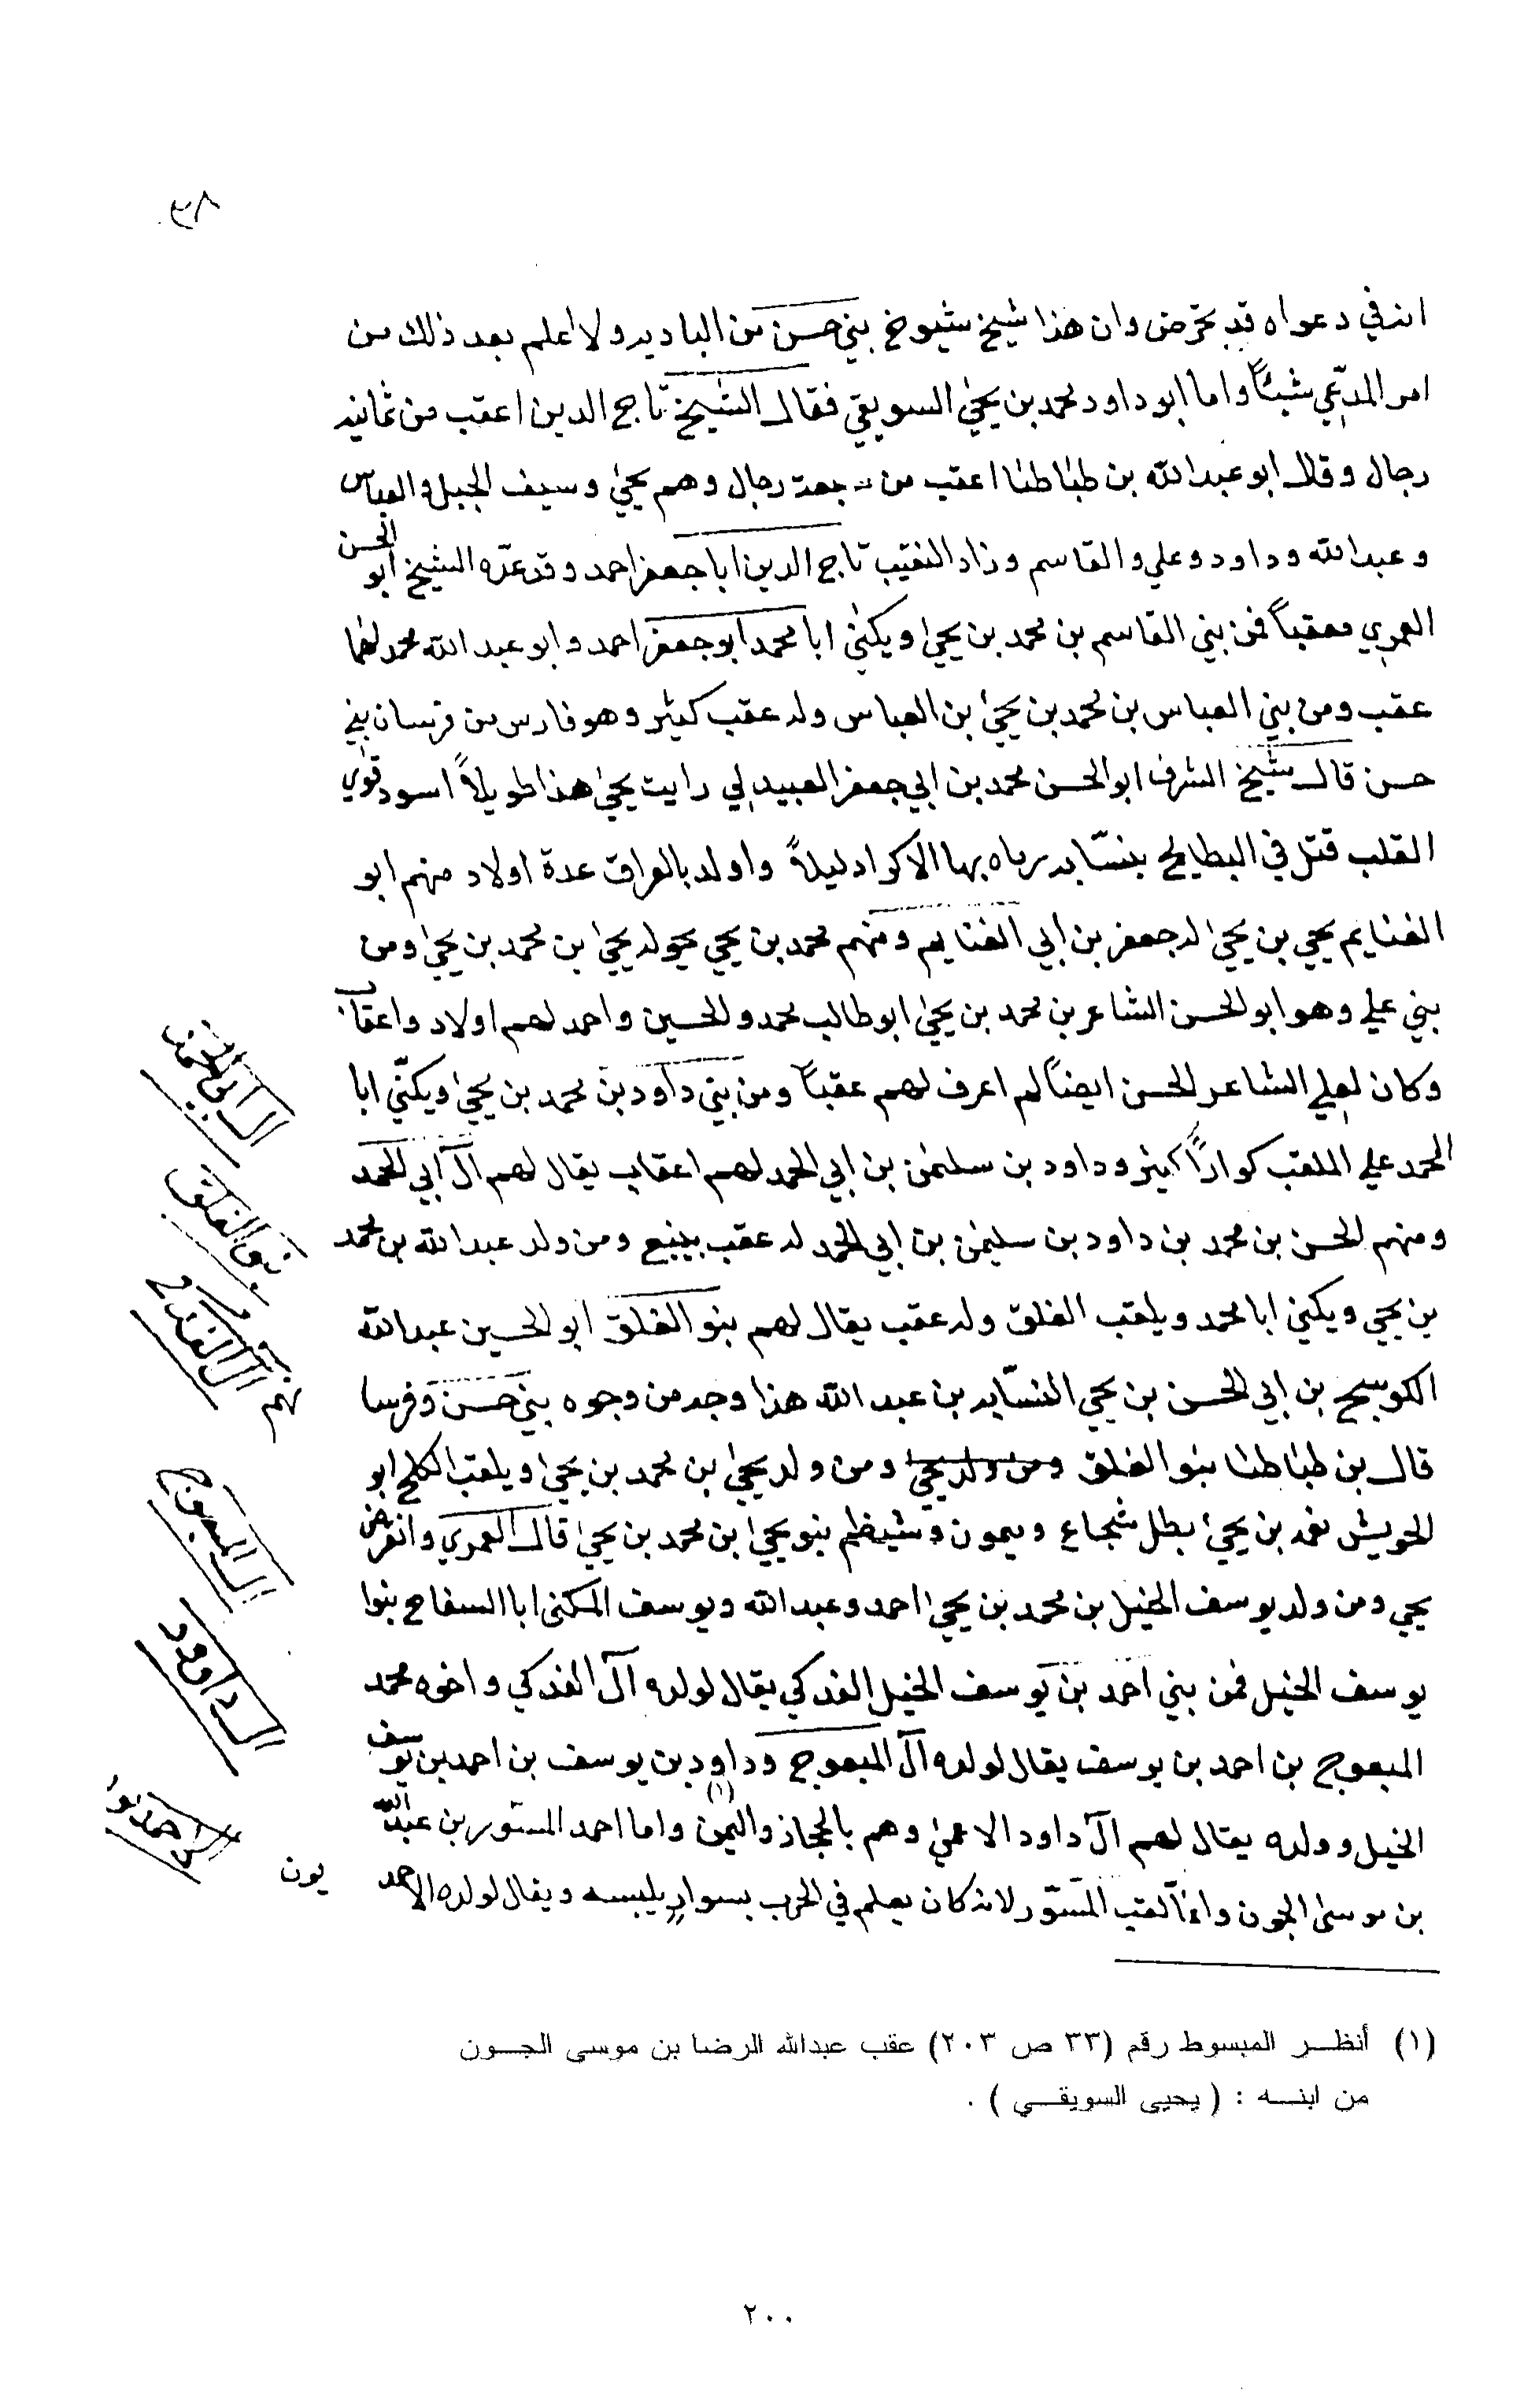 ٣٨
انه في دعواه قد تخرص وان هذا شيخ شيوخ بني حسن من الباديه ولا اعلم بعد ذلك من
امر المدّعي شيئاً واما ابو داود محمد بن يحيٰ السويقي فقال الشيخ تاج الدين اعقب من ثمانيه
رجال وقال ابو عبدالله بن طباطبا اعقب من رجال وهم يحيٰ وسيف الخيل والعباس
وعبدالله وداود وعلي والقاسم وزاد النقيب تاج الدين ابا جعفر احمد وقد عدّه الشيخ ابو الحسن
العمري معقباً فمن بني القاسم بن محمد بن يحيٰ ويكنٰي ابا محمد ابو جعفر احمد وابو عبدالله محمد لهما
عقب ومن بني العباس بن محمد بن يحيٰ بن العباس وله عقب كثير وهو فارس من فرسان بني
حسن قال شيخ الشرف ابو الحسن محمد بن ابي جعفر العبيدلي رايت يحيٰ هذا طويلاً اسود قوي
القلب قتل في البطايح بنشّابه رماه بها الاكراد ليلاً واولد بالعراق عدة اولاد منهم ابو
الغنايم يحيي بن يحيٰ له جعفر بن ابي الغنايم ومنهم محمد بن يحيي ولد يحيٰ بن محمد بن يحيٰ ومن
بني علي وهو ابو الحسن الشاعر بن محمد بن يحيٰ ابو طالب محمد والحسين واحمد لهم اولاد واعقاب
وكان لعلي الشاعر الحسن ايضاً لم اعرف لهم عقباً ومن بني داود بن محمد بن يحيٰ ويكنّي ابا
الحمد علي الملقب كثير وداود بن سليمٰن بن ابي الحمد لهم اعقاب يقال لهم آل ابي الحمد
ومنهم الحسن بن محمد بن داود بن سليمٰن بن ابي الحمد له عقب بينبع ومن ولد عبدالله بن محمد
بن يحيي ويكني ابا محمد ويلقب الغلق وله عقب يقال لهم بنو الغلق ابو الحسين عبدالله
الكوسج بن ابي الحسن بن يحيي النسّابه بن عبدالله هذا وجه من وجوه بني حسن وفرسا
قال بن طباطبا بنو الغلق ومن ولد يحيٰ ومن ولد يحيٰ بن محمد بن يحيٰ ويلقب الكلح ابو
الحويش بن يحيٰ بطل شجاع وميمون بنو يحيٰ بن محمد بن يحيٰ قال العمري وانقرض
يحيي ومن ولد يوسف الخيل بن محمد بن يحيٰ احمد وعبدالله ويوسف المكنى ابا السفاح بنوا
يوسف الخيل فمن بني احمد بن يوسف الخيل الفدكي يقال لولده آل الفدكي واخوه محمد
المبعوج بن احمد بن يوسف يقال لولده آل المبعوج وداود بن يوسف بن احمد بن يوسف
الخيل وولده يقال لهم آل داود الاعمٰي وهم بالحجاز واليمن (١) واما احمد المسّور بن عبدالله
بن موسى الجون وانما لقب المسّور لانه كان يعلم في الحرب بسوار يلبسه ويقال لولده الاحمد يون
بنو الغلق
آل الفدكي
آل المبعوج
آل داود
(١) أنظر المبسوط رقم (٣٣ ص ٢٠٣) عقب عبدالله الرضا بن موسى الجون
من ابنه : ( يحيى السويقي ) .
٢٠٠